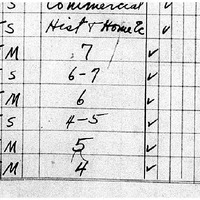 S Commercial ✓
S Hist & Home Ec ✓
M 7 ✓
S 6-7 ✓
M 6 ✓
S 4-5 ✓
M 5 ✓
M 4 ✓